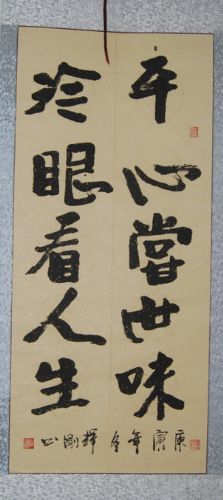 平心當世味
冷眼看人生
庚寅年冬輝剛書